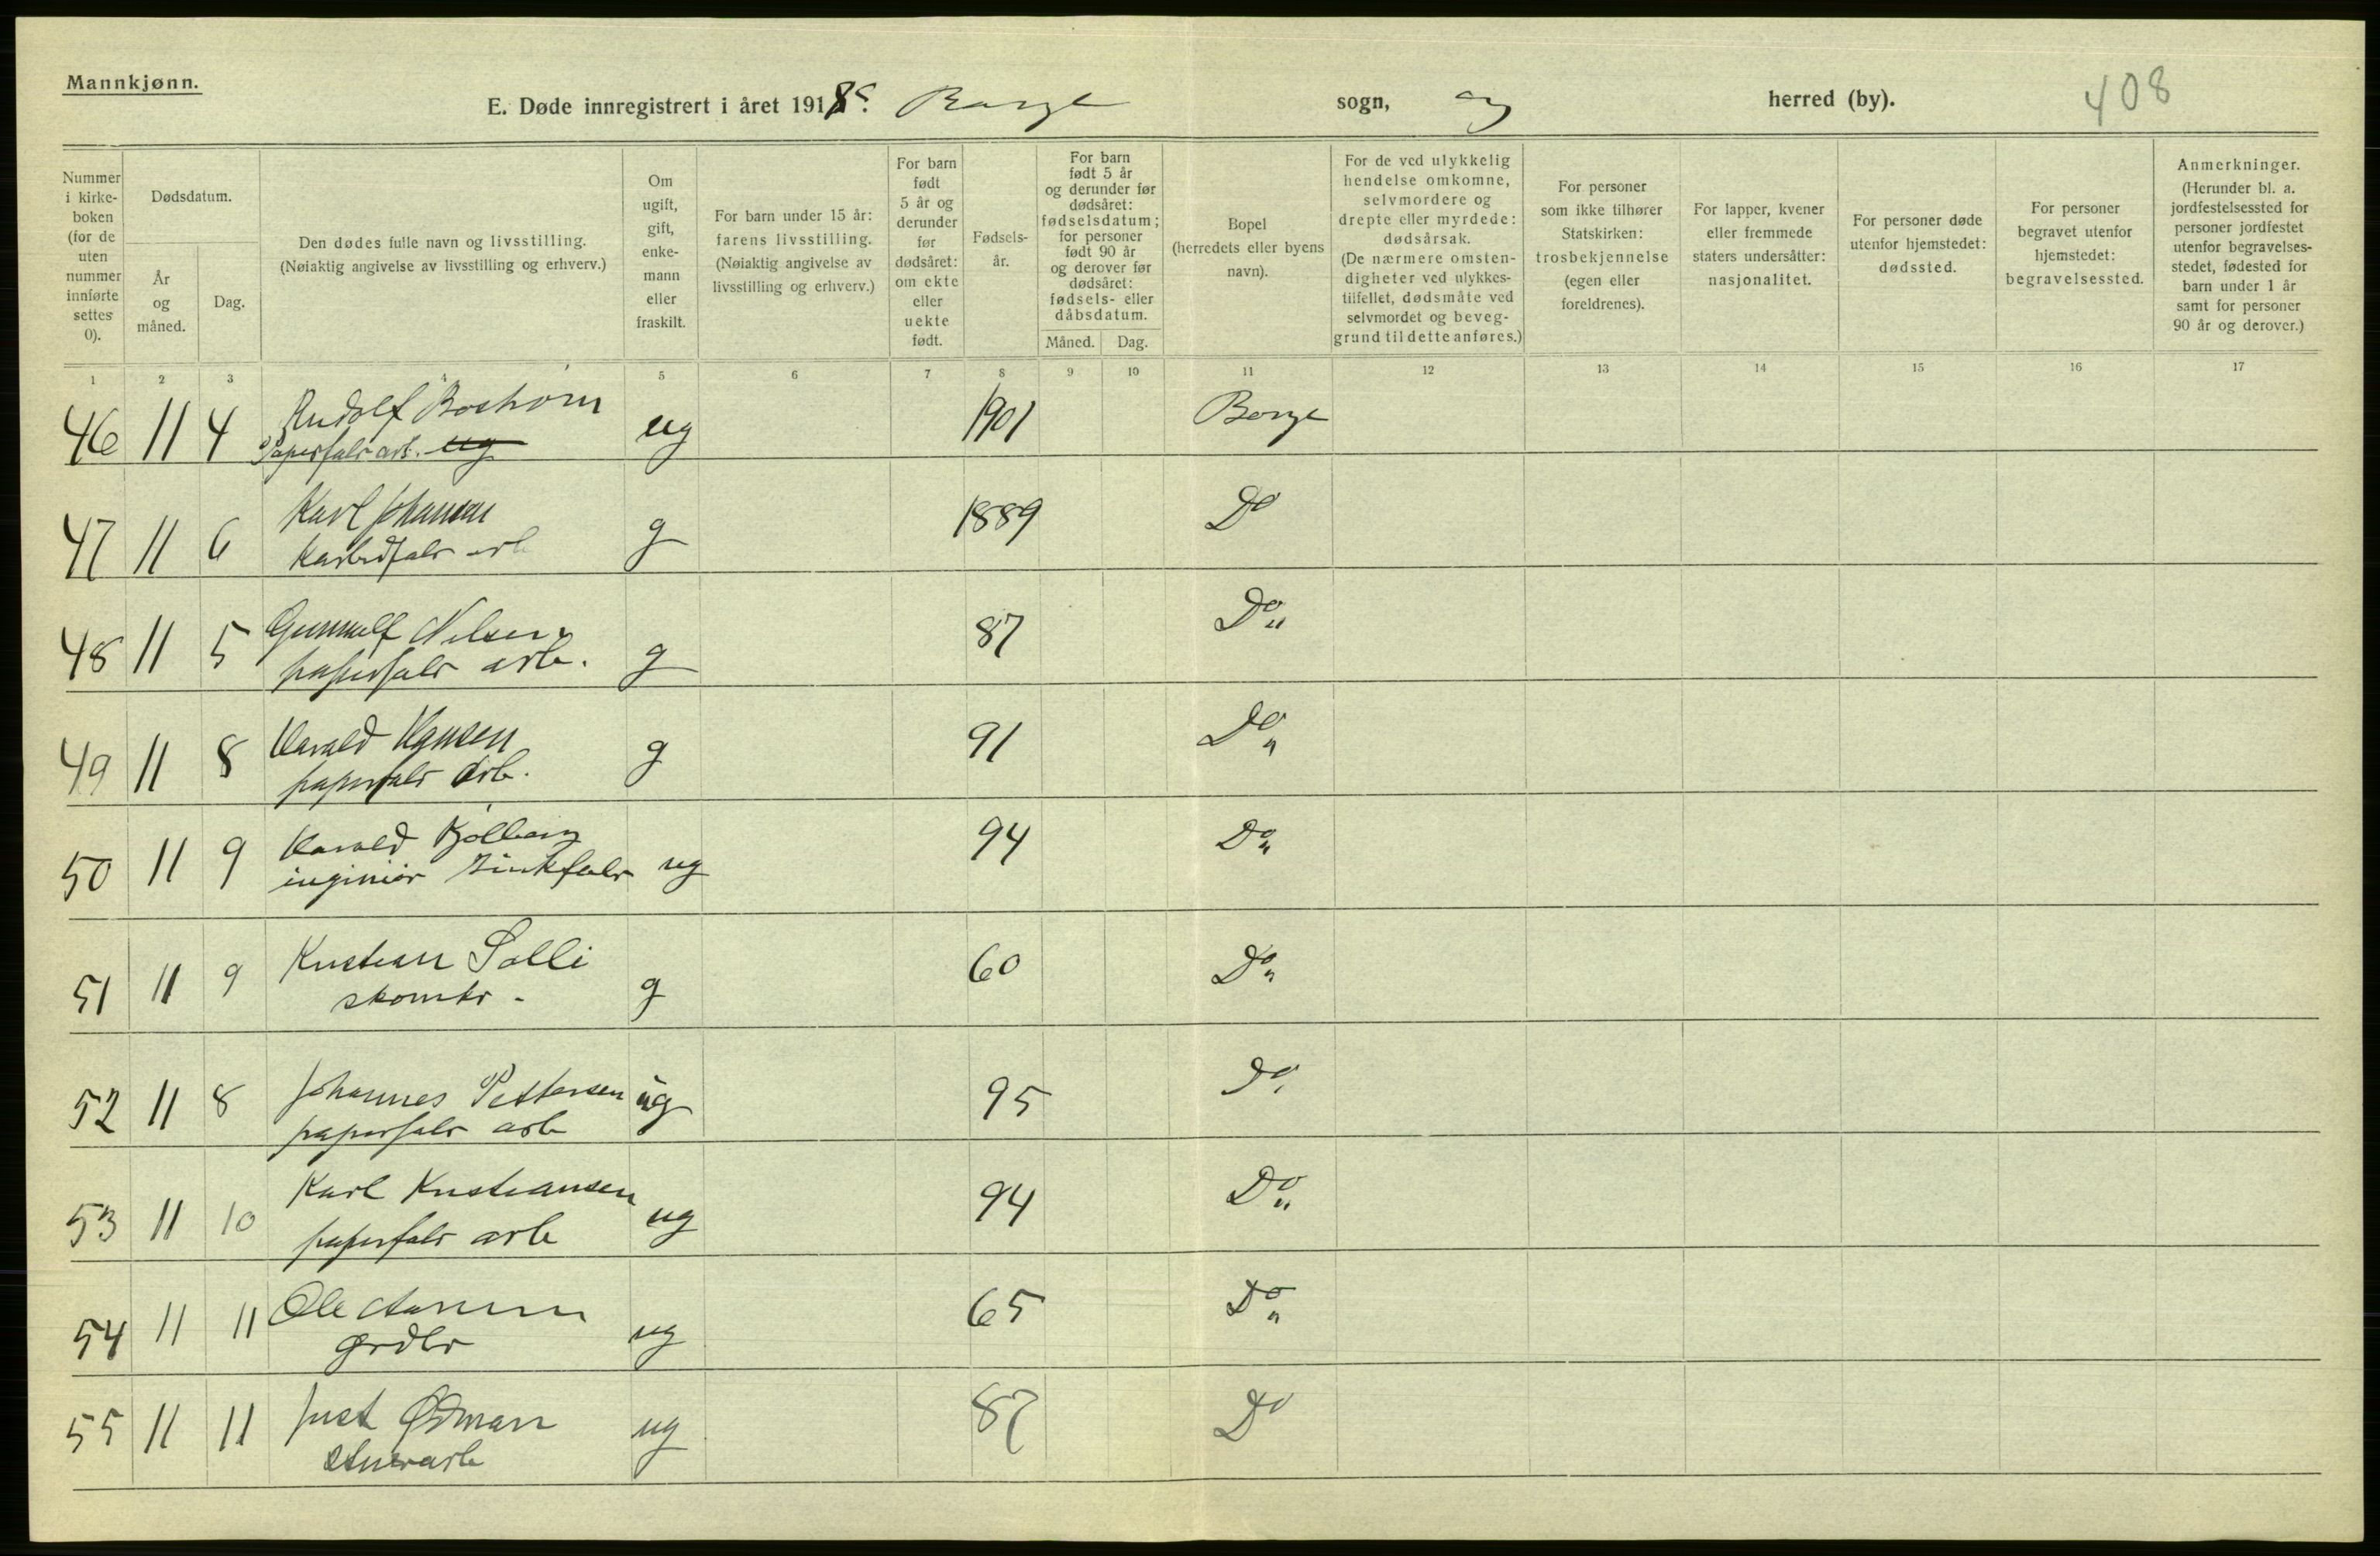 Mannkjønn.
E. Døde innregistrert i året 1918. Borge sogn, og herred (by). 408
Nummer i kirke- boken (for de uten nummer innførte settes 0).
Dødsdatum.
År og måned.
Dag.
Den dødes fulle navn og livsstilling.
(Nøiaktig angivelse av livsstilling og erhverv.)
Om ugift, gift, enke- mann eller fraskilt.
For barn under 15 år: farens livsstilling.
(Nøiaktig angivelse av livsstilling og erhverv.)
For barn født 5 år og derunder før dødsåret: om ekte eller uekte født.
Fødsels- år.
For barn født 5 år og derunder før dødsåret: fødselsdatum; for personer født 90 år og derover før dødsåret: fødsels- eller dåbsdatum.
Måned. Dag.
Bopel (herredets eller byens navn).
For de ved ulykkelig hendelse omkomne, selvmordere og drepte eller myrdede: dødsårsak.
(De nærmere omsten- digheter ved ulykkes- tilfellet, dødsmåte ved selvmordet og beveg- grund til dette anføres.)
For personer som ikke tilhører Statskirken: trosbekjennelse (egen eller foreldrenes).
For lapper, kvener eller fremmede staters undersåtter: nasjonalitet.
For personer døde utenfor hjemstedet: dødssted.
For personer begravet utenfor hjemstedet: begravelsessted.
Anmerkninger.
(Herunder bl. a. jordfestelsessted for personer jordfestet utenfor begravelses- stedet, fødested for barn under 1 år samt for personer 90 år og derover.)
1 2 3 4 5 6 7 8 9 10 11 12 13 14 15 16 17
46 11 4 Rudolf ug 1901 Borge
Papirfabr arb. ug
47 11 6 Karl Johansen g 1889 Do
Karbidfabr arb
48 11 5 Gunnulf Nilsen g 87 Do "
papirfabr arb.
49 11 8 Harald Hansen g 91 Do "
papirfabr arb.
50 11 9 Harald Kjølberg ug 94 Do "
inginiør Zinkfabr
51 11 9 Kristian Solli g 60 Do "
skomkr -
52 11 8 Johannes Pettersen ug 95 Do "
papirfabr arb
53 11 10 Karl Kristiansen ug 94 Do "
papirfabr arb
54 11 11 Ole ug 65 Do "
grdbr
55 11 11 Just Ødman ug 87 Do
stuerarb